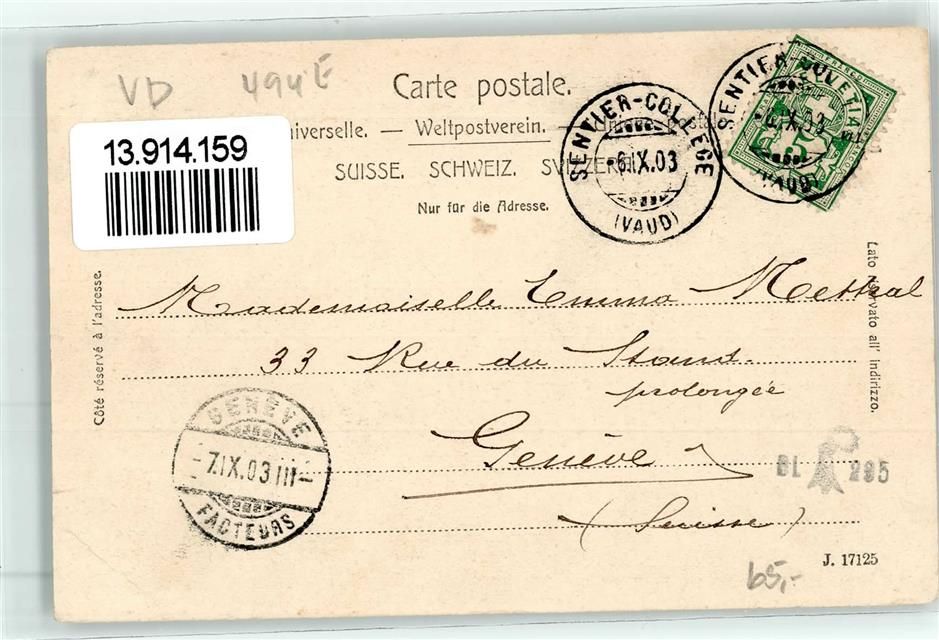 VD 494E
Carte postale.
13.914.159
iverselle. — Weltpostverein. —
SUISSE. SCHWEIZ. SVIZZERA
Nur für die Adresse.
SENTIER-COLLEGE
-6.IX.03
(VAUD)
SENTIER-COLLEGE
-6.IX.03
(VAUD)
HELVETIA
5
Côté réservé à l'adresse.
Lato riservato all' indirizzo.
Mademoiselle Emma Mettral
33 Rue du Stand.
prolongée
Genève
(Suisse)
GENÈVE
-7.IX.03 III-
FACTEURS
BL 295
J. 17125
65,-